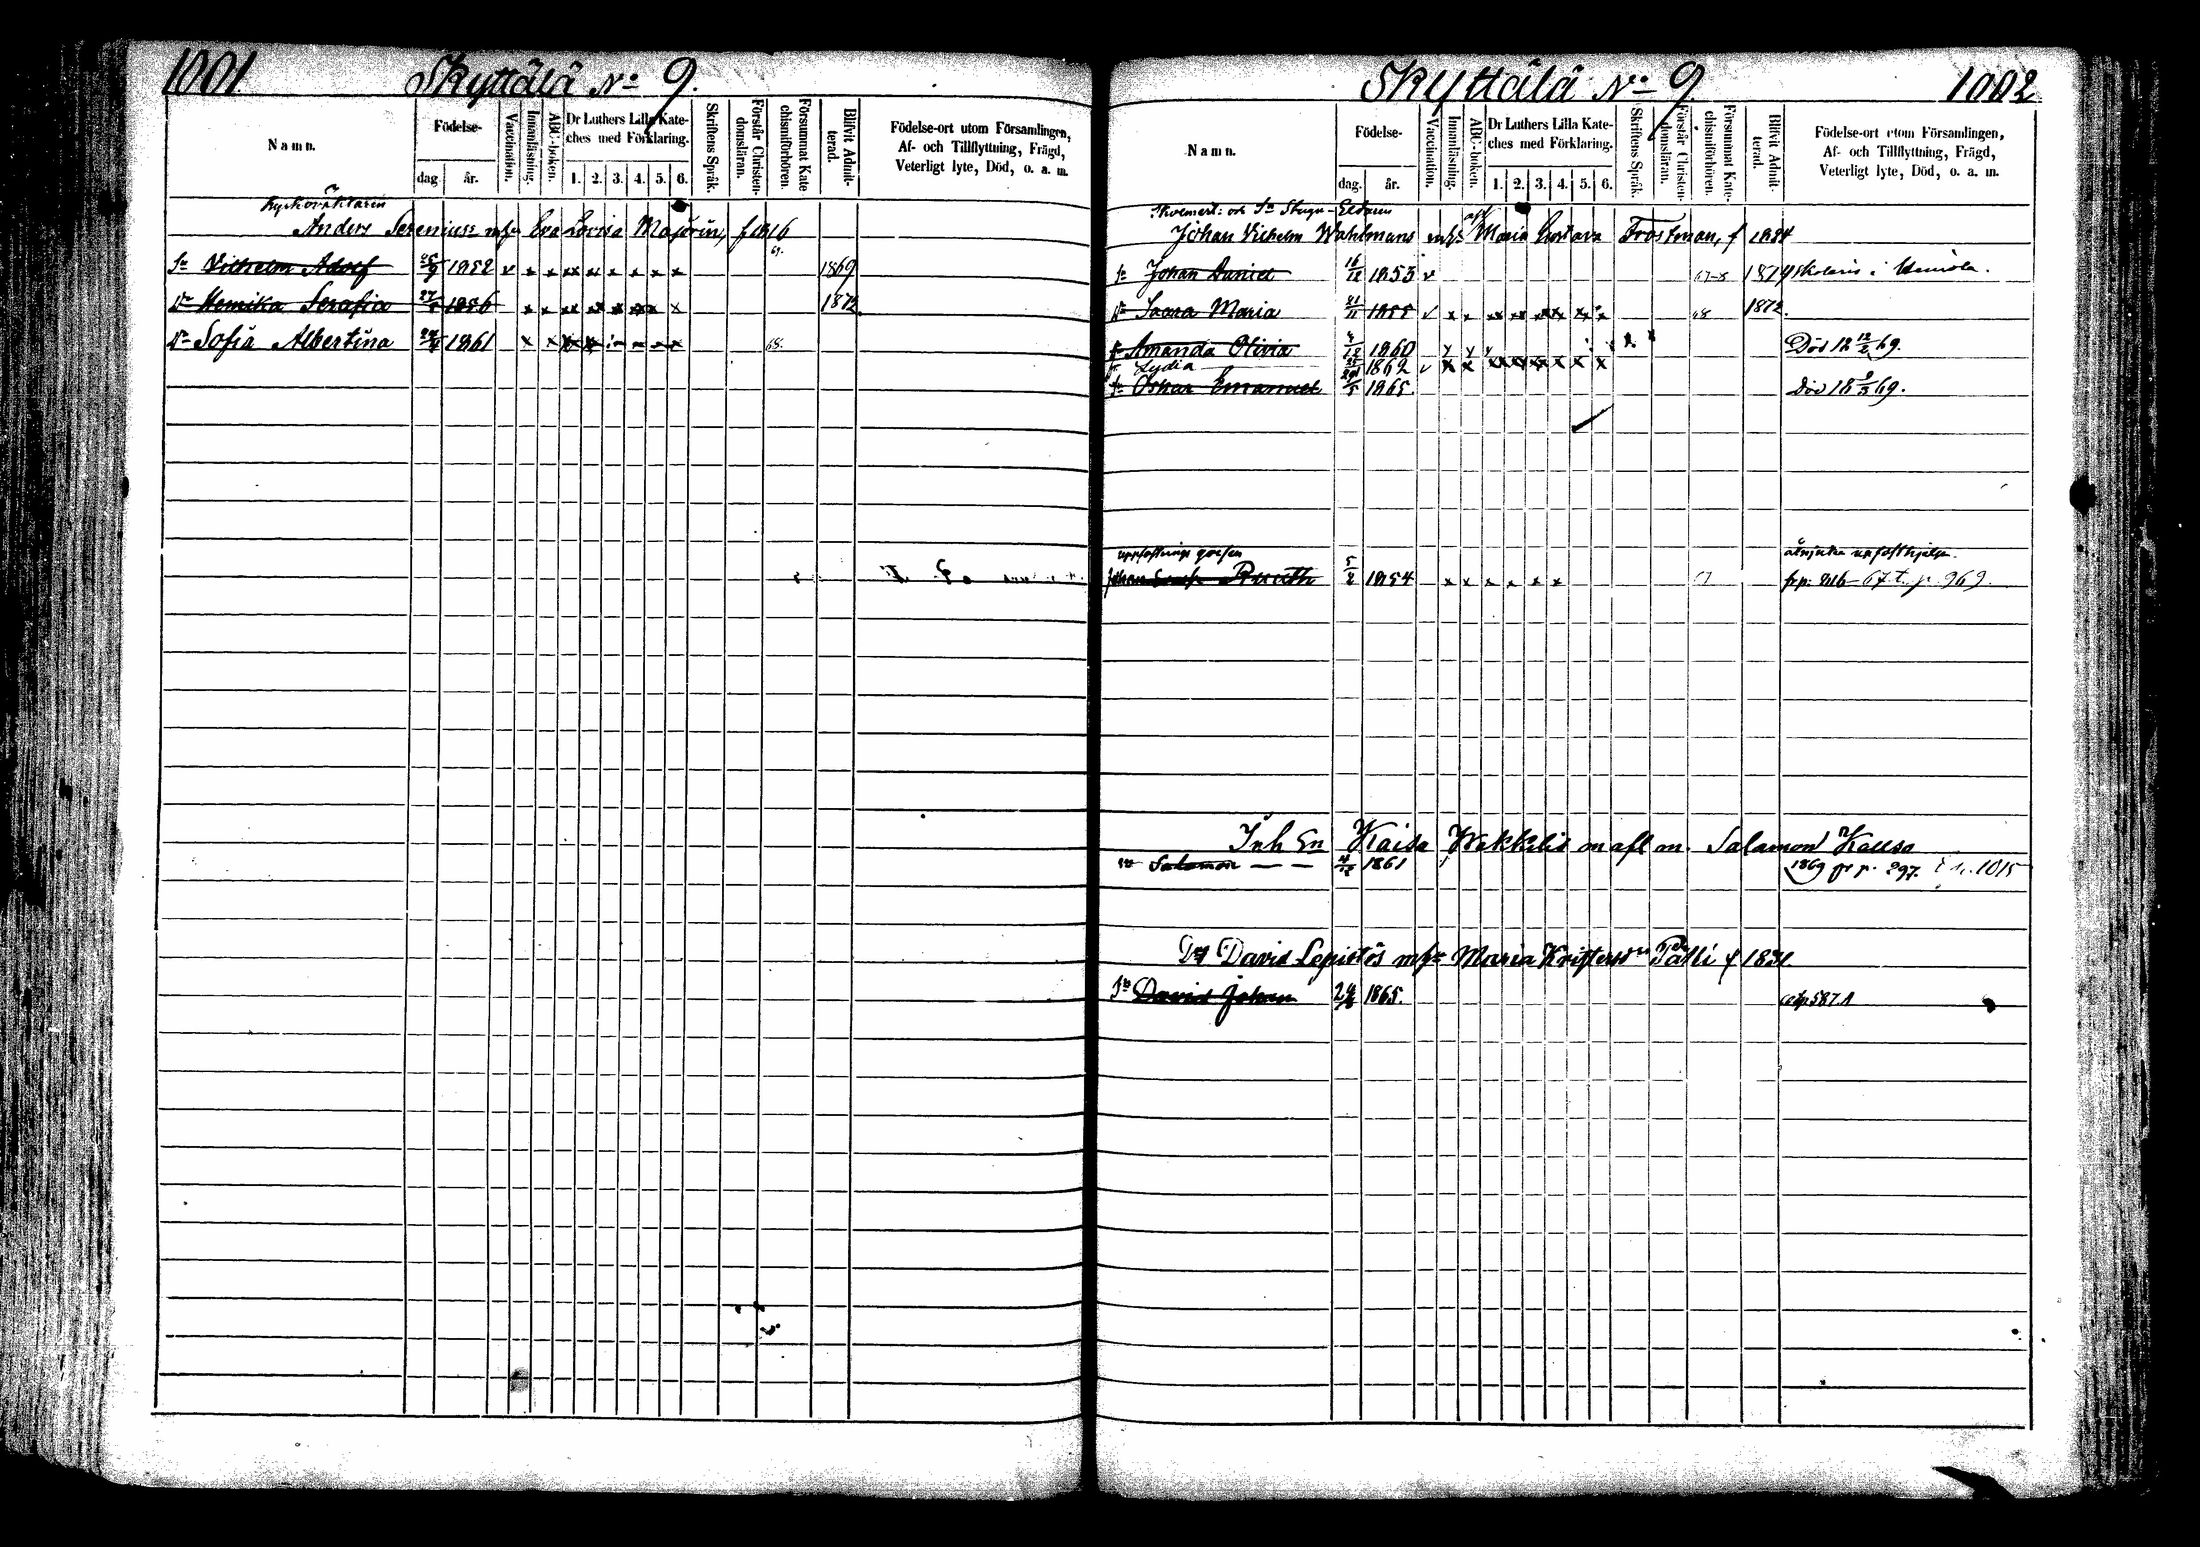 1001. Skyttälä No 9.
Namn.
Födelse-
dag
år.
Vaccination.
Innanläsning.
ABC-boken.
Dr Luthers Lilla Kate-
ches med Förklaring.
1. 2. 3. 4. 5. 6.
Skriftens Språk.
Förstår Christen-
domsläran.
Försummat Kate
chismiförhören.
Blifvit Admit-
terad.
Födelse-ort utom Församlingen,
Af- och Tillflyttning, Frägd,
Veterligt lyte, Död, o. a. m.
Kyrkovaktaren
Anders Serenius mhu Eva Lovisa Majorin, f 1816
Sn Vilhelm Adolf 1852 v x x x x x x x x 69. 1869
Dr Hemika Serafia 27 1856 x x x x x x x x 1872
Dr Sofia Albertina 1861 x x x x 68.
Skyttälä No 9 1002
Namn.
Födelse-
dag.
år.
Vaccination.
Innanläsning.
ABC-boken.
Dr Luthers Lilla Kate-
ches med Förklaring.
1. 2. 3. 4. 5. 6.
Skriftens Språk.
Förstår Christen-
domsläran.
Försummat Kate-
chismiförhören.
Blifvit Admit-
terad.
Födelse-ort utom Församlingen,
Af- och Tillflyttning, Frägd,
Veterligt lyte, Död, o. a. m.
Johan Vilhelm Wahlmans Maria Gustava Frostman, f 1824
Sn Johan Daniel 16/12 1853 v 67-8 1874
Dr Saara Maria 21/11 1855 v x x x x x x x x 68 1872.
Dr Amanda Olivia 1860 Död 18 12/2 69.
Dr Lydia 1862 v x x x x x x x x
Sn Oskar Emanuel 1865. Död 18 9/3 69.
Johan Ruuth 5/2 1854 x x x x x x 67 t. p. 969.
Inh En Kaisa afl m. Salamon
Sn Salamon 1861 1869 fr p. 297. 1015
David Lepistös mhu Maria f 1831.
Sn David Johan 1865. p 587.